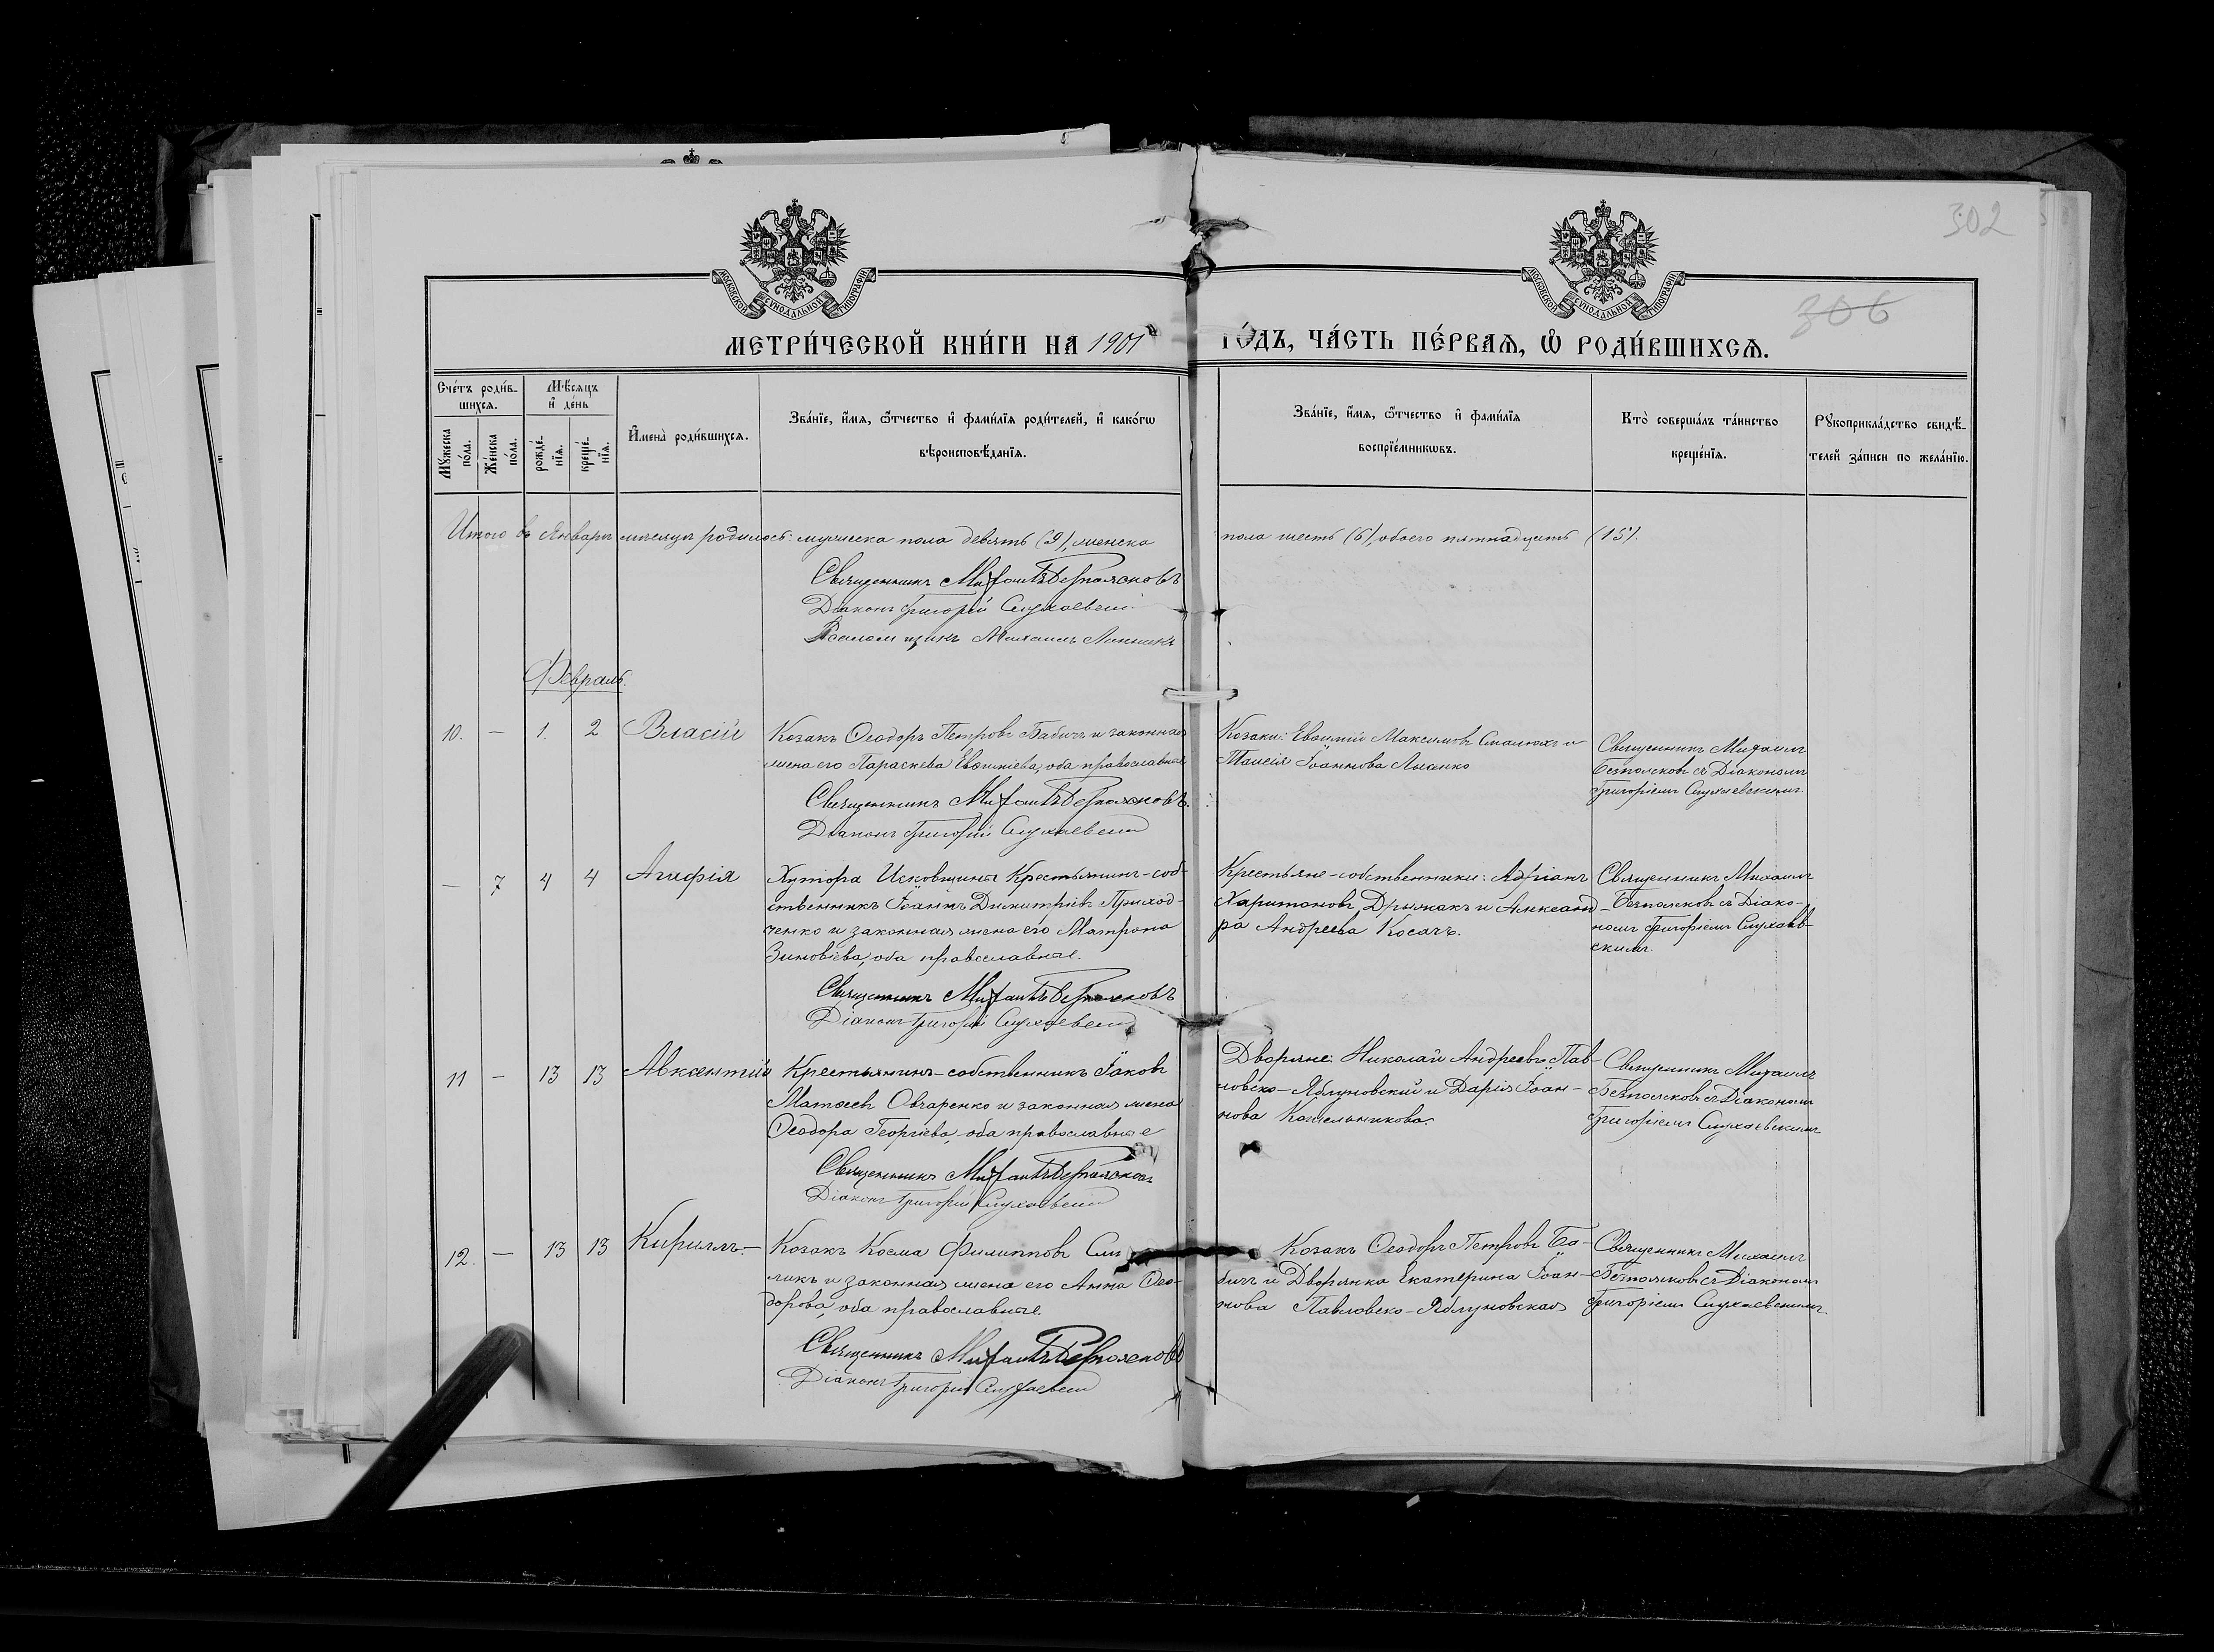 302
306
МОСКОВСКОЙ СѴНОДАЛЬНОЙ ТИПОГРАФІИ
МОСКОВСКОЙ СѴНОДАЛЬНОЙ ТИПОГРАФІИ
МЕТРИ́ЧЕСКОЙ КНИ́ГИ НА 1901 ГО́ДЪ, ЧА́СТЬ ПЕ́РВАѦ, Ѽ РОДИ́ВШИХСѦ.
Сче́тъ роди́в-
шихсѧ.
Мѣ́сѧцъ
и҆ де́нь
Мꙋ́жеска
по́ла.
Же́нска
по́ла.
рожде́-
нїѧ.
креще́-
нїѧ.
И҆мена̀ роди́вшихсѧ.
Зва́нїе, и҆́мѧ, ѻ҆́тчество и҆ фами́лїѧ роди́телей, и҆ како́гѡ
вѣроисповѣ́данїѧ.
Зва́нїе, и҆́мѧ, ѻ҆́тчество и҆ фами́лїѧ
воспрїе́мникѡвъ.
Кто̀ соверша́лъ та́инство
креще́нїѧ.
Рꙋкоприкла́дство свидѣ́-
телей за́писи по жела́нїю.
Итого въ Январѣ мѣсяцѣ родилось: мужеска пола девять (9), женска
пола шесть (6), обоего пятнадцать (15).
Священникъ Михаилъ Безпоясковъ
Діаконъ Григорій Слухаевскій
Псаломщикъ Михаилъ Линникъ
Февраль.
10. — 1. 2 Власій
Козакъ Ѳеодоръ Петровъ Бабичъ и законная
жена его Параскева Евѳиміева, оба православные
Священникъ Михаилъ Безпоясковъ.
Діаконъ Григорій Слухаевскій
Козаки: Евѳимій Максимовъ и
Таисія Іоаннова
Священникъ Михаилъ
Безпоясковъ съ Діакономъ
Григоріемъ Слухаевскимъ
— 7 4 4 Агафія
Хутора Исковщины Крестьянинъ-соб-
ственникъ Іоаннъ Димитріевъ Приход-
ченко и законная жена его Матрона
Зиновіева, оба православные.
Священникъ Михаилъ Безпоясковъ
Діаконъ Григорій Слухаевскій
Крестьяне-собственники: Адріанъ
Харитоновъ Дрыжакъ и Александ-
ра Андреева Косачъ.
Священникъ Михаилъ
Безпоясковъ съ Діако-
номъ Григоріемъ Слухаев-
скимъ.
11 — 13 13 Авксентій
Крестьянинъ-собственникъ Іаковъ
Матѳеевъ Овчаренко и законная жена
Ѳеодора Георгіева, оба православные
Священникъ Михаилъ Безпоясковъ
Діаконъ Григорій Слухаевскій
Дворяне: Николай Андреевъ Пав-
ловско-Яблуновскій и Дарія Іоан-
нова Котельникова.
Священникъ Михаилъ
Безпоясковъ съ Діакономъ
Григоріемъ Слухаевскимъ
12. — 13 13 Кириллъ.—
Козакъ Косма Филипповъ
и законная жена его Анна Ѳео-
дорова, оба православные.
Священникъ Михаилъ Безпоясковъ
Діаконъ Григорій Слухаевскій
Козакъ Ѳеодоръ Петровъ Ба-
бичъ и Дворянка Екатерина Іоан-
нова Павловско-Яблуновская
Священникъ Михаилъ
Безпоясковъ съ Діакономъ
Григоріемъ Слухаевскимъ.